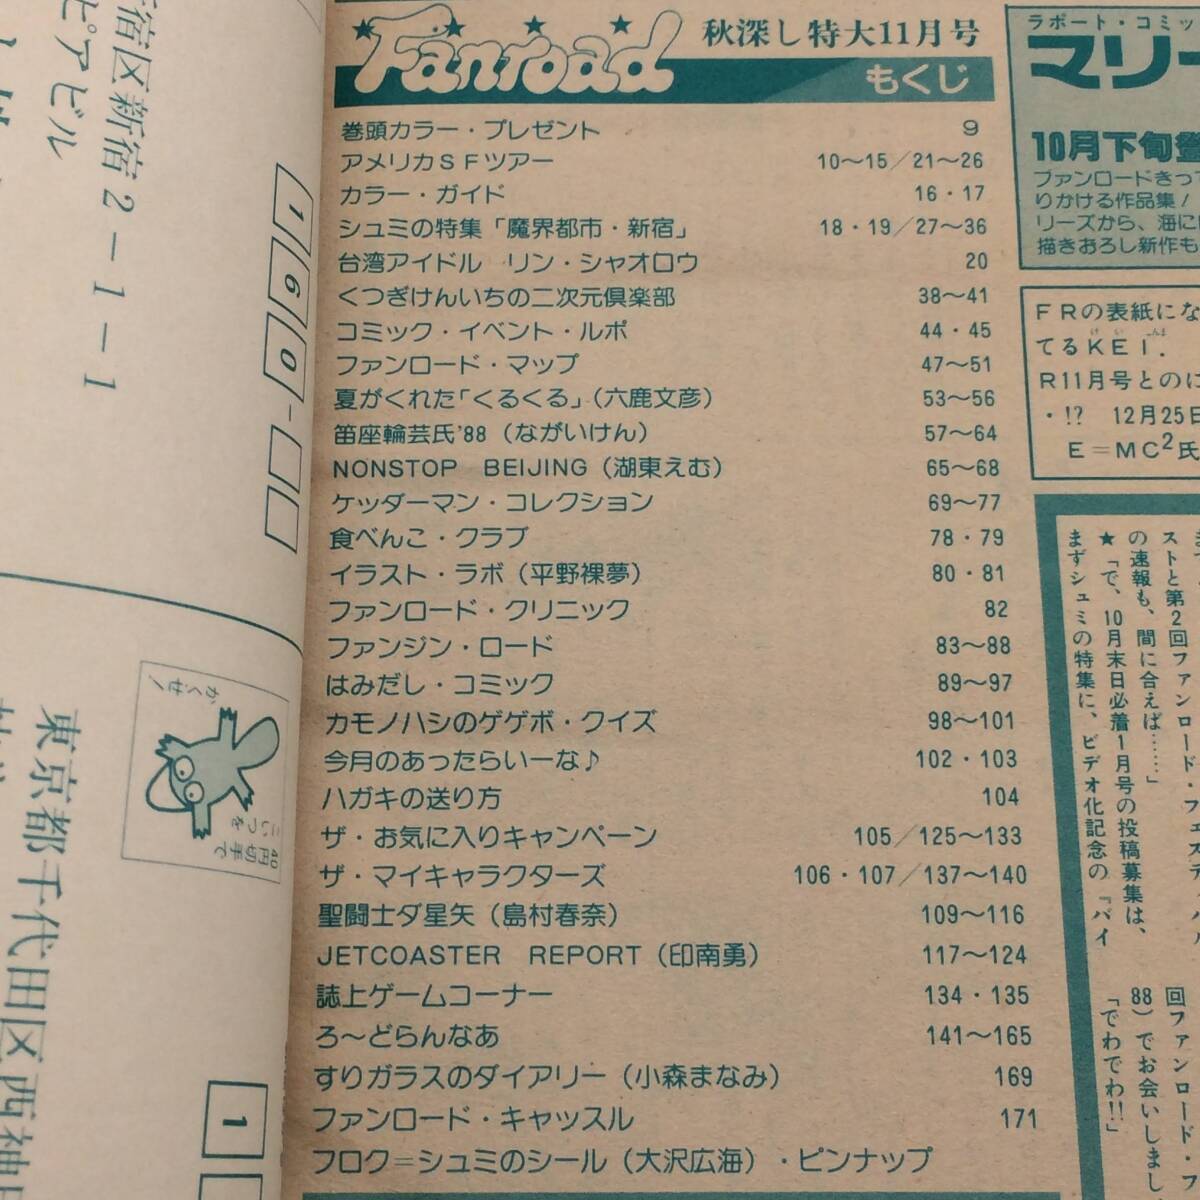 Fanroad
秋深し特大11月号
もくじ
巻頭カラー・プレゼント 9
アメリカSFツアー 10〜15/21〜26
カラー・ガイド 16・17
シュミの特集「魔界都市・新宿」 18・19/27〜36
台湾アイドル リン・シャオロウ 20
くつぎけんいちの二次元倶楽部 38〜41
コミック・イベント・ルポ 44・45
ファンロード・マップ 47〜51
夏がくれた「くるくる」(六鹿文彦) 53〜56
笛座輪芸氏'88(ながいけん) 57〜64
NONSTOP BEIJING(湖東えむ) 65〜68
ケッダーマン・コレクション 69〜77
食べんこ・クラブ 78・79
イラスト・ラボ(平野裸夢) 80・81
ファンロード・クリニック 82
ファンジン・ロード 83〜88
はみだし・コミック 89〜97
カモノハシのゲゲボ・クイズ 98〜101
今月のあったらいーな♪ 102・103
ハガキの送り方 104
ザ・お気に入りキャンペーン 105/125〜133
ザ・マイキャラクターズ 106・107/137〜140
聖闘士ダ星矢(島村春奈) 109〜116
JETCOASTER REPORT(印南勇) 117〜124
誌上ゲームコーナー 134・135
ろ〜どらんなあ 141〜165
すりガラスのダイアリー(小森まなみ) 169
ファンロード・キャッスル 171
フロク=シュミのシール(大沢広海)・ピンナップ
ラポート・コミッ
マリー
10月下旬
ファンロードきって
りかける作品集!
リーズから、海に
描きおろし新作も
FRの表紙にな
てるKEI.
R11月号とのに
・!? 12月25日
E=MC2氏
ストと第2回ファンロード・フェステ
の速報も、間に合えば……」
★「で、10月末日必着1月号の投稿募集は、
まずシュミの特集に、ビデオ化記念の『バイ
回ファンロード・フ
88)でお会いしまし
「でわでわ!!」
宿区新宿2-1-1
ピアビル
160-
かくぜ!
40円切手で
こいつを
東京都千代田区西神
1